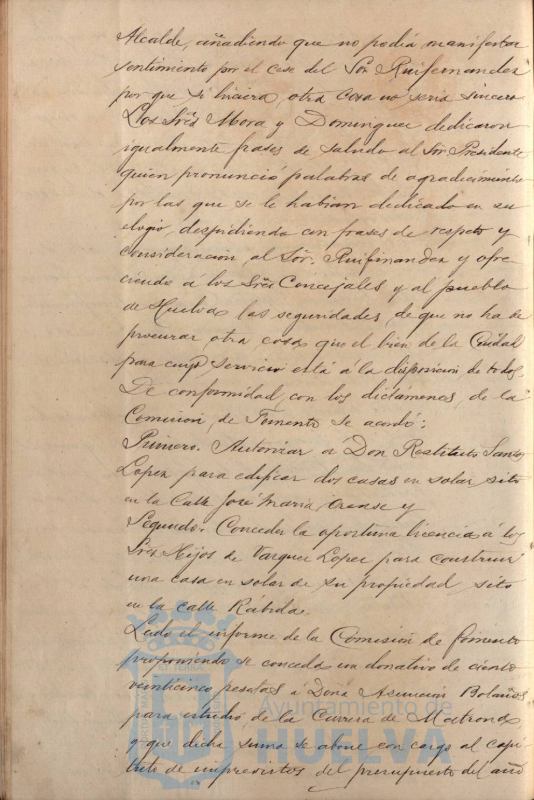 Alcalde, añadiendo que no podia manifestar
sentimiento por el cese del Sor Ruifernandez
por que si hiciera otra cosa no seria sincero.
Los Srēs Mora y Dominguez dedicaron
igualmente frases de saludo al Sor Presidente
quien pronunció palabras de agradecimiento
por las que se le habian dedicado en su
elogio, despidiendo con frases de respeto y
consideracion al Sor. Ruifernandez y ofre
ciendo á los Srēs Concejales y al pueblo
de Huelva las seguridades, de que no ha de
procurar otra cosa que el bien de la Ciudad
para cuyo servicio está á la disposicion de todos.
De conformidad con los dictámenes de la
Comision de Fomento se acordó:
Primero. Autorizar a Don Restituto Santos
Lopez para edificar dos casas en solar sito
en la Calle José Maria Orense y
Segundo. Conceder la oportuna licencia á los
Srēs Hijos de Vazquez Lopez para construir
una casa en solar de su propiedad sito
en la calle Rábida.
Leido el informe de la Comisión de Fomento
proponiendo se conceda un donativo de ciento
veinticinco pesetas a Doña Asuncion Bolaños
para estudio de la Carrera de Matrona
y que dicha suma se abone con cargo al capi
tulo de imprevistos del presupuesto del año
Ayuntamiento de
HUELVA